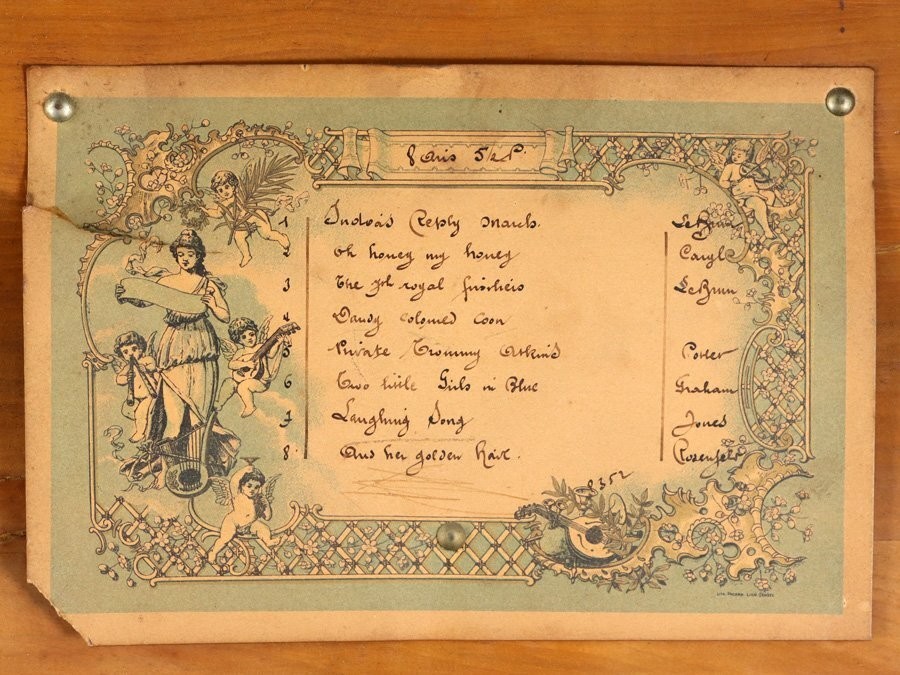 8 airs 5/2 P.
1 India's Reply march. LeBrun
2 Oh honey my honey Caryll
3 The 7th royal fusiliers LeBrun
4 Dandy coloured coon
5 Private Tommy Atkins Potter
6 Two little Girls in Blue Graham
7 Laughing Song Jones
8 And her golden hair. Rosenfeld
8352